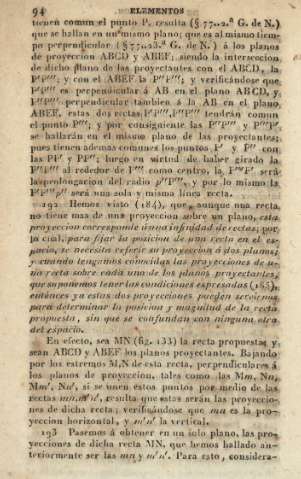 94 ELEMENTOS
tienen comun el punto P, resulta (§ 77..2.ª G. de N.)
que se hallan en un mismo plano; que es al mismo tiem-
po perpendicular (§ 77..23.ª G. de N.) á los planos
de proyeccion ABCD y ABEF; siendo la interseccion
de dicho plano de las proyectantes con el ABCD, la
y con el ABEF la y verificándose que
es perpendicular á AB en el plano ABCD, y
perpendicular tambien á la AB en el plano
ABEF, estas dos rectas tendrán comun
el punto y por consiguiente las y
se hallarán en el mismo plano de las proyectantes;
pues tienen ademas comunes los puntos P' y P'' con
las PP' y PP''; luego en virtud de haber girado la
al rededor de como centro, la será
la prolongacion del radio y por lo mismo la
será una sola y misma línea recta.
192 Hemos visto (184), que, aunque una recta
no tiene mas de una proyeccion sobre un plano, esta
proyeccion corresponde á una infinidad de rectas; por
lo cual, para fijar la posicion de una recta en el es-
pacio, se necesita referir su proyeccion á dos planos;
y cuando tengamos conocidas las proyecciones de u-
na recta sobre cada uno de los planos proyectantes,
que suponemos tener las condiciones espresadas (185),
entónces ya estas dos proyecciones pueden servirnos
para determinar la posicion y magnitud de la recta
propuesta, sin que se confundan con ninguna otra
del espacio.
En efecto, sea MN (fig. 133) la recta propuesta y
sean ABCD y ABEF los planos proyectantes. Bajando
por los estremos M, N de esta recta, perpendiculares á
los planos de proyeccion, tales como las Mm, Nn,
Mm', Nn', si se unen estos puntos por medio de las
rectas mn, m'n', resulta que estas serán las proyeccio-
nes de dicha recta; verificándose que mn es la pro-
yeccion horizontal, y m'n' la vertical.
193 Pasemos á obtener en un solo plano, las pro-
yecciones de dicha recta MN, que hemos hallado an-
teriormente ser las mn y m'n'. Para esto, considera-